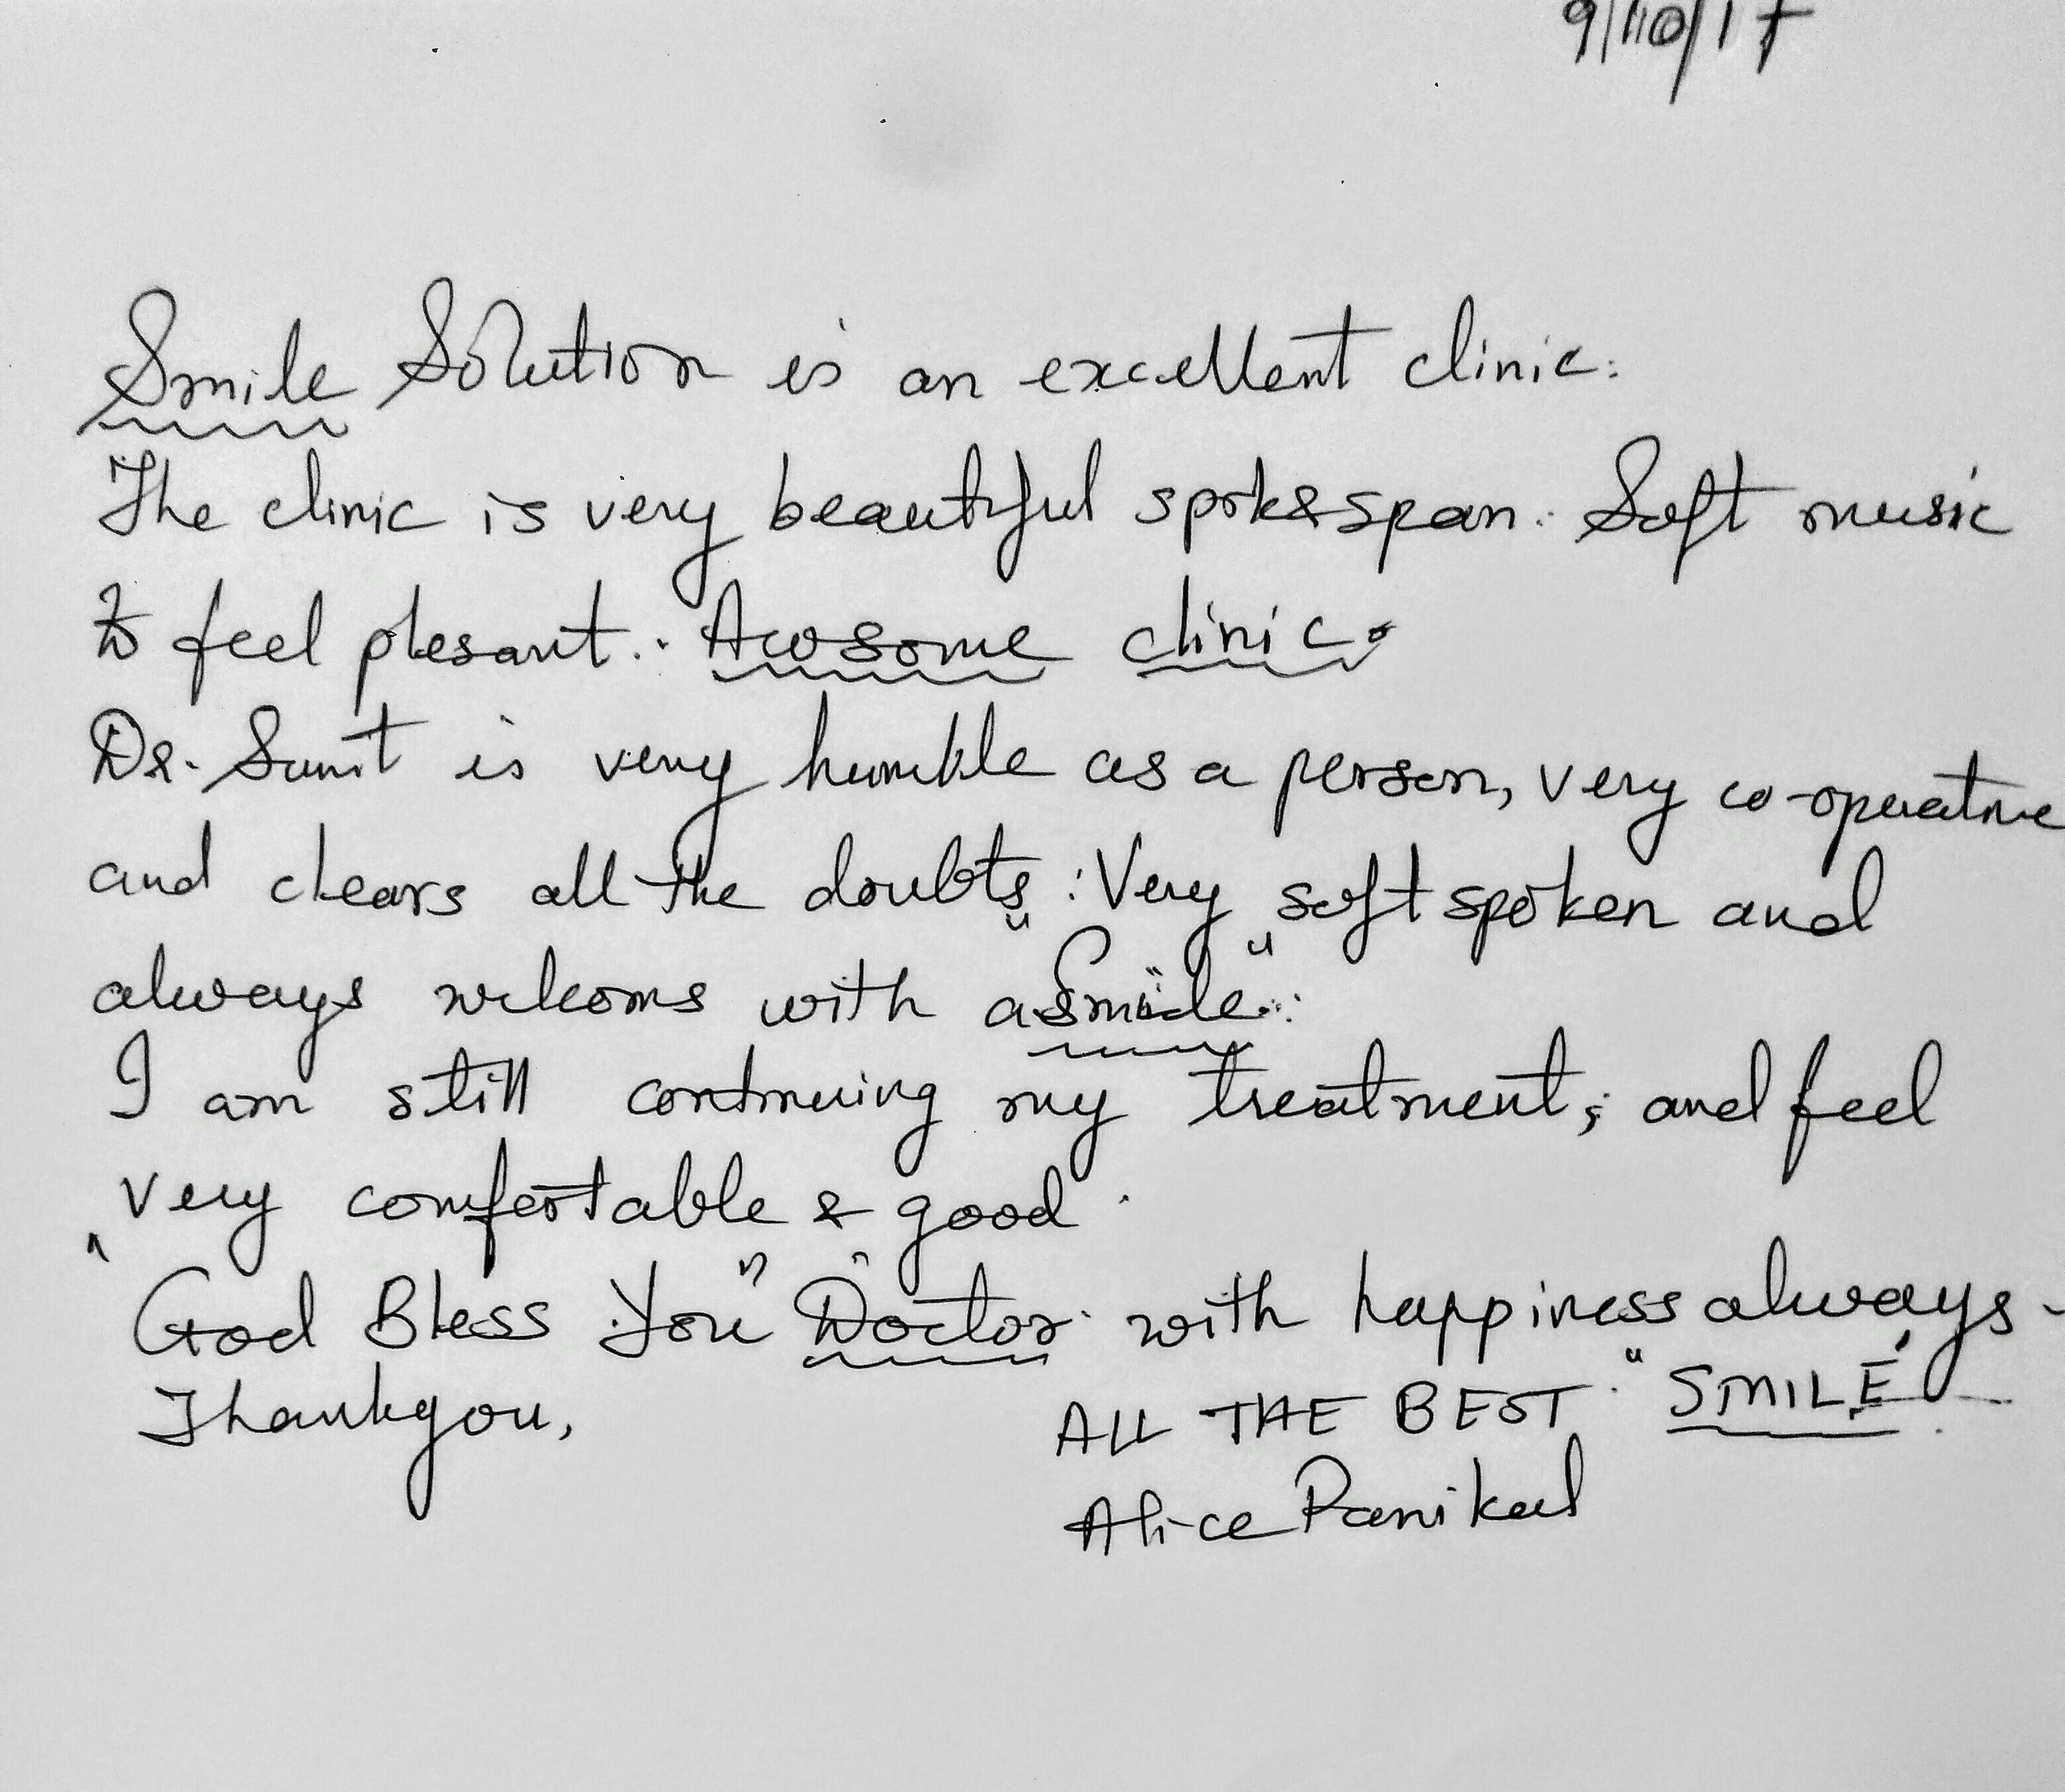 9/10/17
Smile Solution is an excellent clinic.
The clinic is very beautiful spik&span. Soft music
to feel plesant.. Awosome clinic.
Dr. Sumit is very humble as a person, very co-operative
and clears all the doubts. Very soft spoken and
always welcoms with a "Smile".
I am still continuing my treatment, and feel
very comfortable & good.
"God Bless You" Doctor with happiness always.
Thankyou,
ALL THE BEST. "SMILE"
Alice